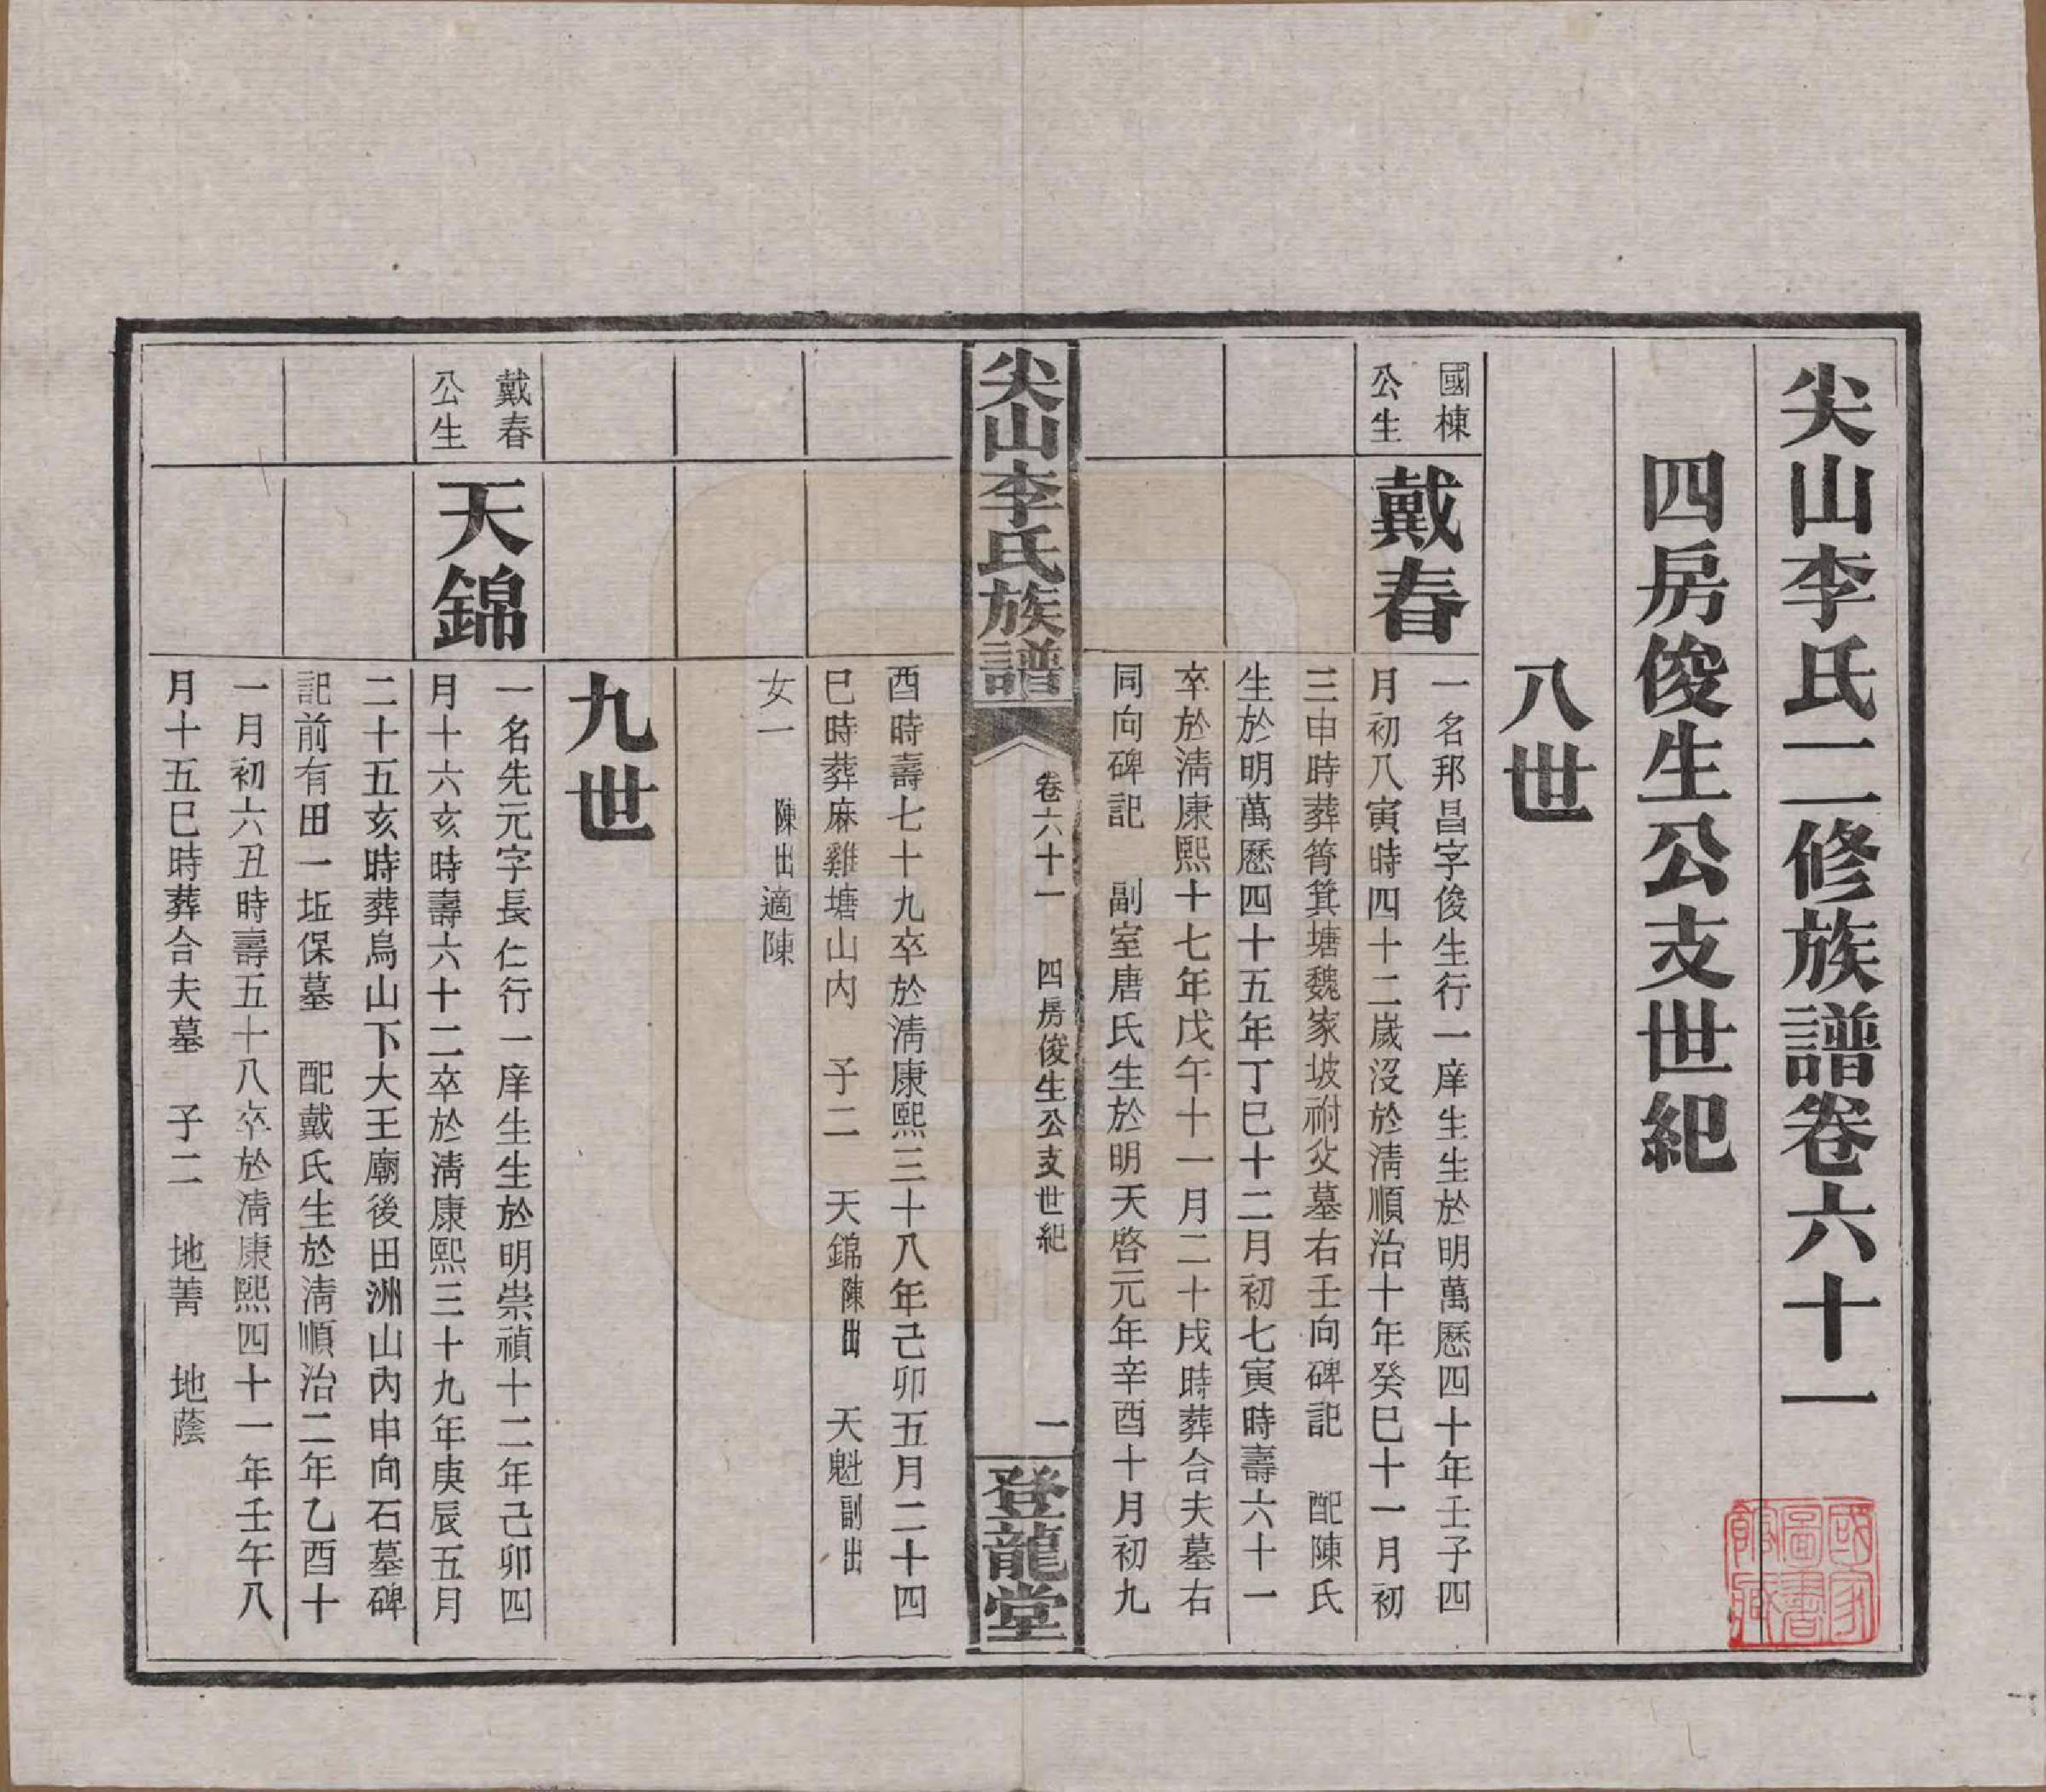 尖山李氏二修族譜卷六十一
四房俊生公支世紀
八世
國棟
公生
戴春
一名邦昌字俊生行一庠生生於明萬歷四十年壬子四
月初八寅時四十二歲沒於淸順治十年癸巳十一月初
三申時葬筲箕塘魏家坡祔父墓右壬向碑記　配陳氏
生於明萬歷四十五年丁巳十二月初七寅時壽六十一
卒於淸康熙十七年戊午十一月二十戌時葬合夫墓右
同向碑記　副室唐氏生於明天啓元年辛酉十月初九
尖山李氏族譜
卷六十一　四房俊生公支世紀
一
登龍堂
酉時壽七十九卒於淸康熙三十八年己卯五月二十四
巳時葬麻雞塘山內　子二　天錦陳出　天魁副出
女一　陳出適陳
九世
戴春
公生
天錦
一名先元字長仁行一庠生生於明崇禎十二年己卯四
月十六亥時壽六十二卒於淸康熙三十九年庚辰五月
二十五亥時葬鳥山下大王廟後田洲山內申向石墓碑
記前有田一坵保墓　配戴氏生於淸順治二年乙酉十
一月初六丑時壽五十八卒於淸康熙四十一年壬午八
月十五巳時葬合夫墓　子二　地菁　地蔭
國家
圖書
館藏